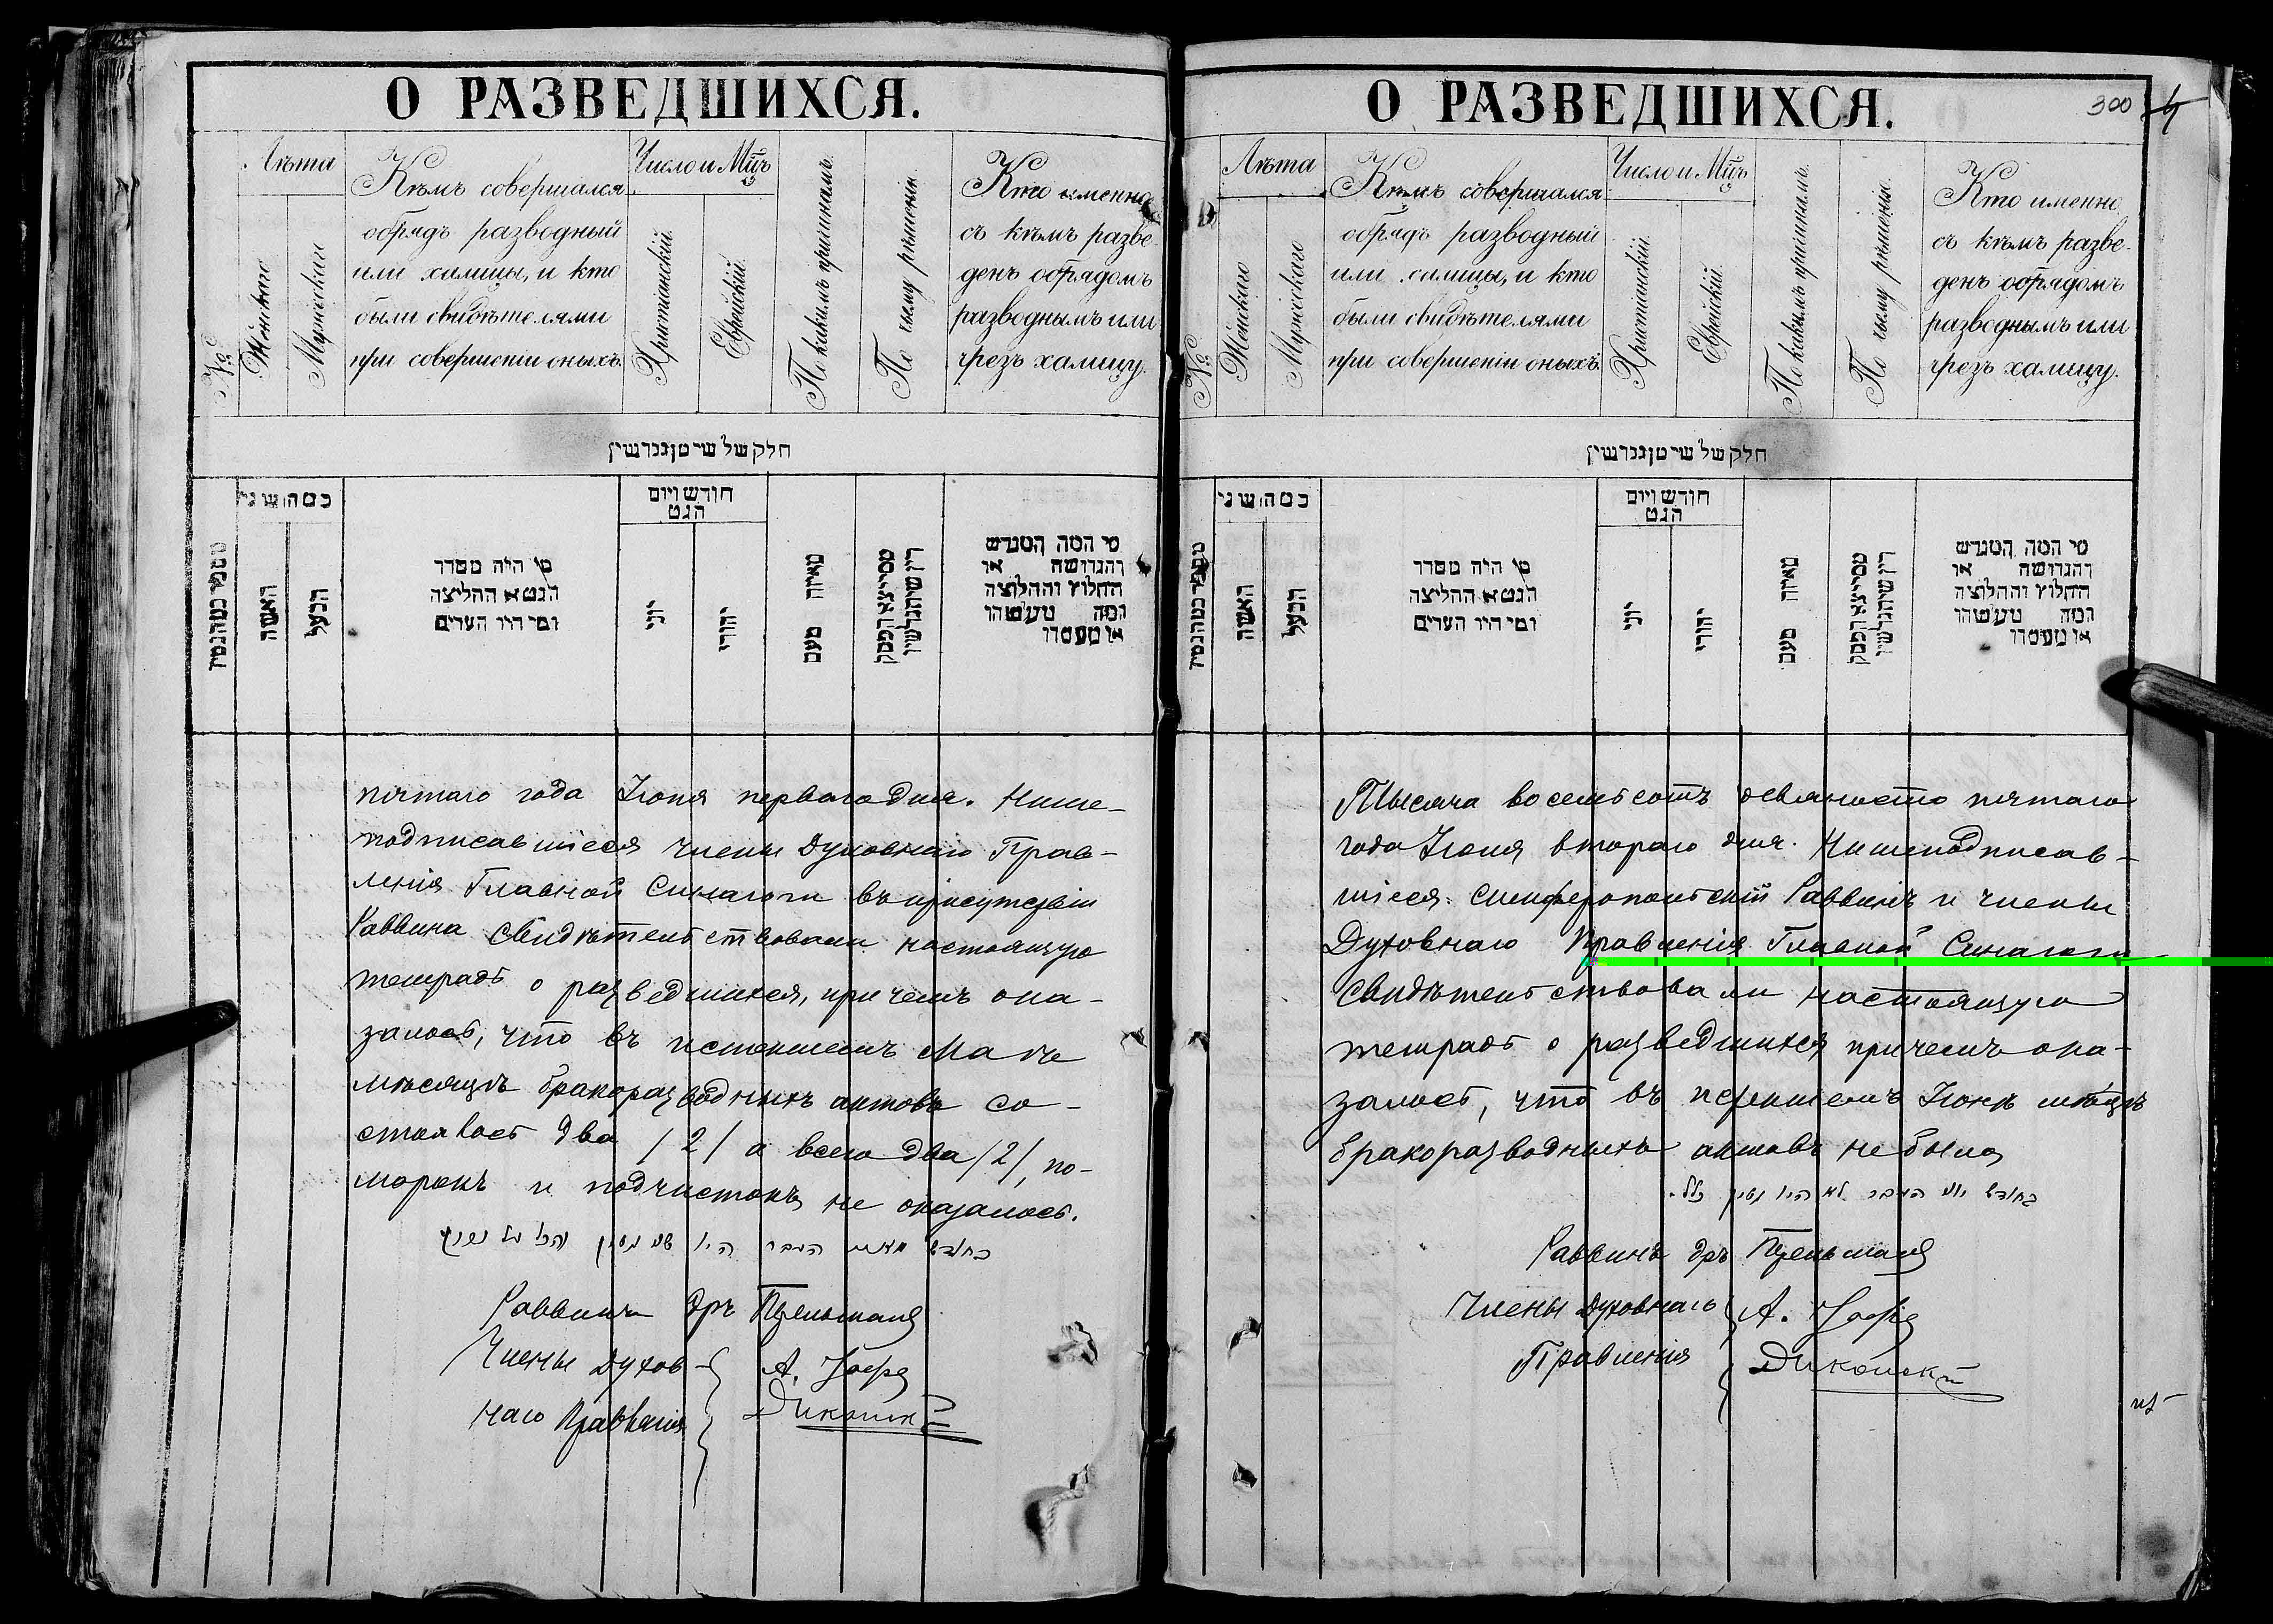 О РАЗВЕДШИХСЯ.
№
Лѣта
Женскаго
Мужескаго
Кѣмъ совершался
обрядъ разводный
или халицы, и кто
были свидѣтелями
при совершеніи оныхъ.
Число и Мѣцъ
Христіанскій.
Еврейскій.
По какимъ причинамъ.
По чьему рѣшенію.
Кто именно
съ кѣмъ разве-
денъ обрядомъ
разводнымъ или
чрезъ халицу.
חלק של שיטן גרושין
כמה שני
האשה
הבעל
מי היה מסדר
הגט או החליצה
ומי היו העדים
חודש ויום
הגט
יוני
יהודי
מאיזה טעם
מי המה המגרש
והגרושה או
החלוץ והחלוצה
пятаго года Іюня перваго дня. Ниже-
подписавшіеся члены Духовнаго Прав-
ленія Главной Синагоги въ присутствіи
Раввина свидѣтельствовали настоящую
тетрадь о разведшихся, причемъ ока-
залось, что въ истекшемъ Маѣ
мѣсяцѣ бракоразводныхъ актовъ со-
стоялось два /2/ а всего два /2/, по-
марокъ и подчистокъ не оказалось.
Раввинъ Дръ
Члены Духов-
наго Правленія
А. Іоффе
О РАЗВЕДШИХСЯ.
300
№
Лѣта
Женскаго
Мужескаго
Кѣмъ совершался
обрядъ разводный
или халицы, и кто
были свидѣтелями
при совершеніи оныхъ.
Число и Мѣцъ
Христіанскій.
Еврейскій.
По какимъ причинамъ.
По чьему рѣшенію.
Кто именно
съ кѣмъ разве-
денъ обрядомъ
разводнымъ или
чрезъ халицу.
חלק של שיטן גרושין
כמה שני
האשה
הבעל
מי היה מסדר
הגט או החליצה
ומי היו העדים
חודש ויום
הגט
יוני
יהודי
מאיזה טעם
מי המה המגרש
והגרושה או
החלוץ והחלוצה
Тысяча восемьсотъ девяносто пятаго
года Іюля втораго дня. Нижеподписав-
шіеся: Симферопольскій Раввинъ и члены
Духовнаго Правленія Главной Синагоги
свидѣтельствовали настоящую
тетрадь о разведшихся причемъ ока-
залось, что въ истекшемъ Іюнѣ мѣсяцѣ
бракоразводныхъ актовъ не было
Раввинъ Дръ
Члены Духовнаго
Правленія
А. Іоффе